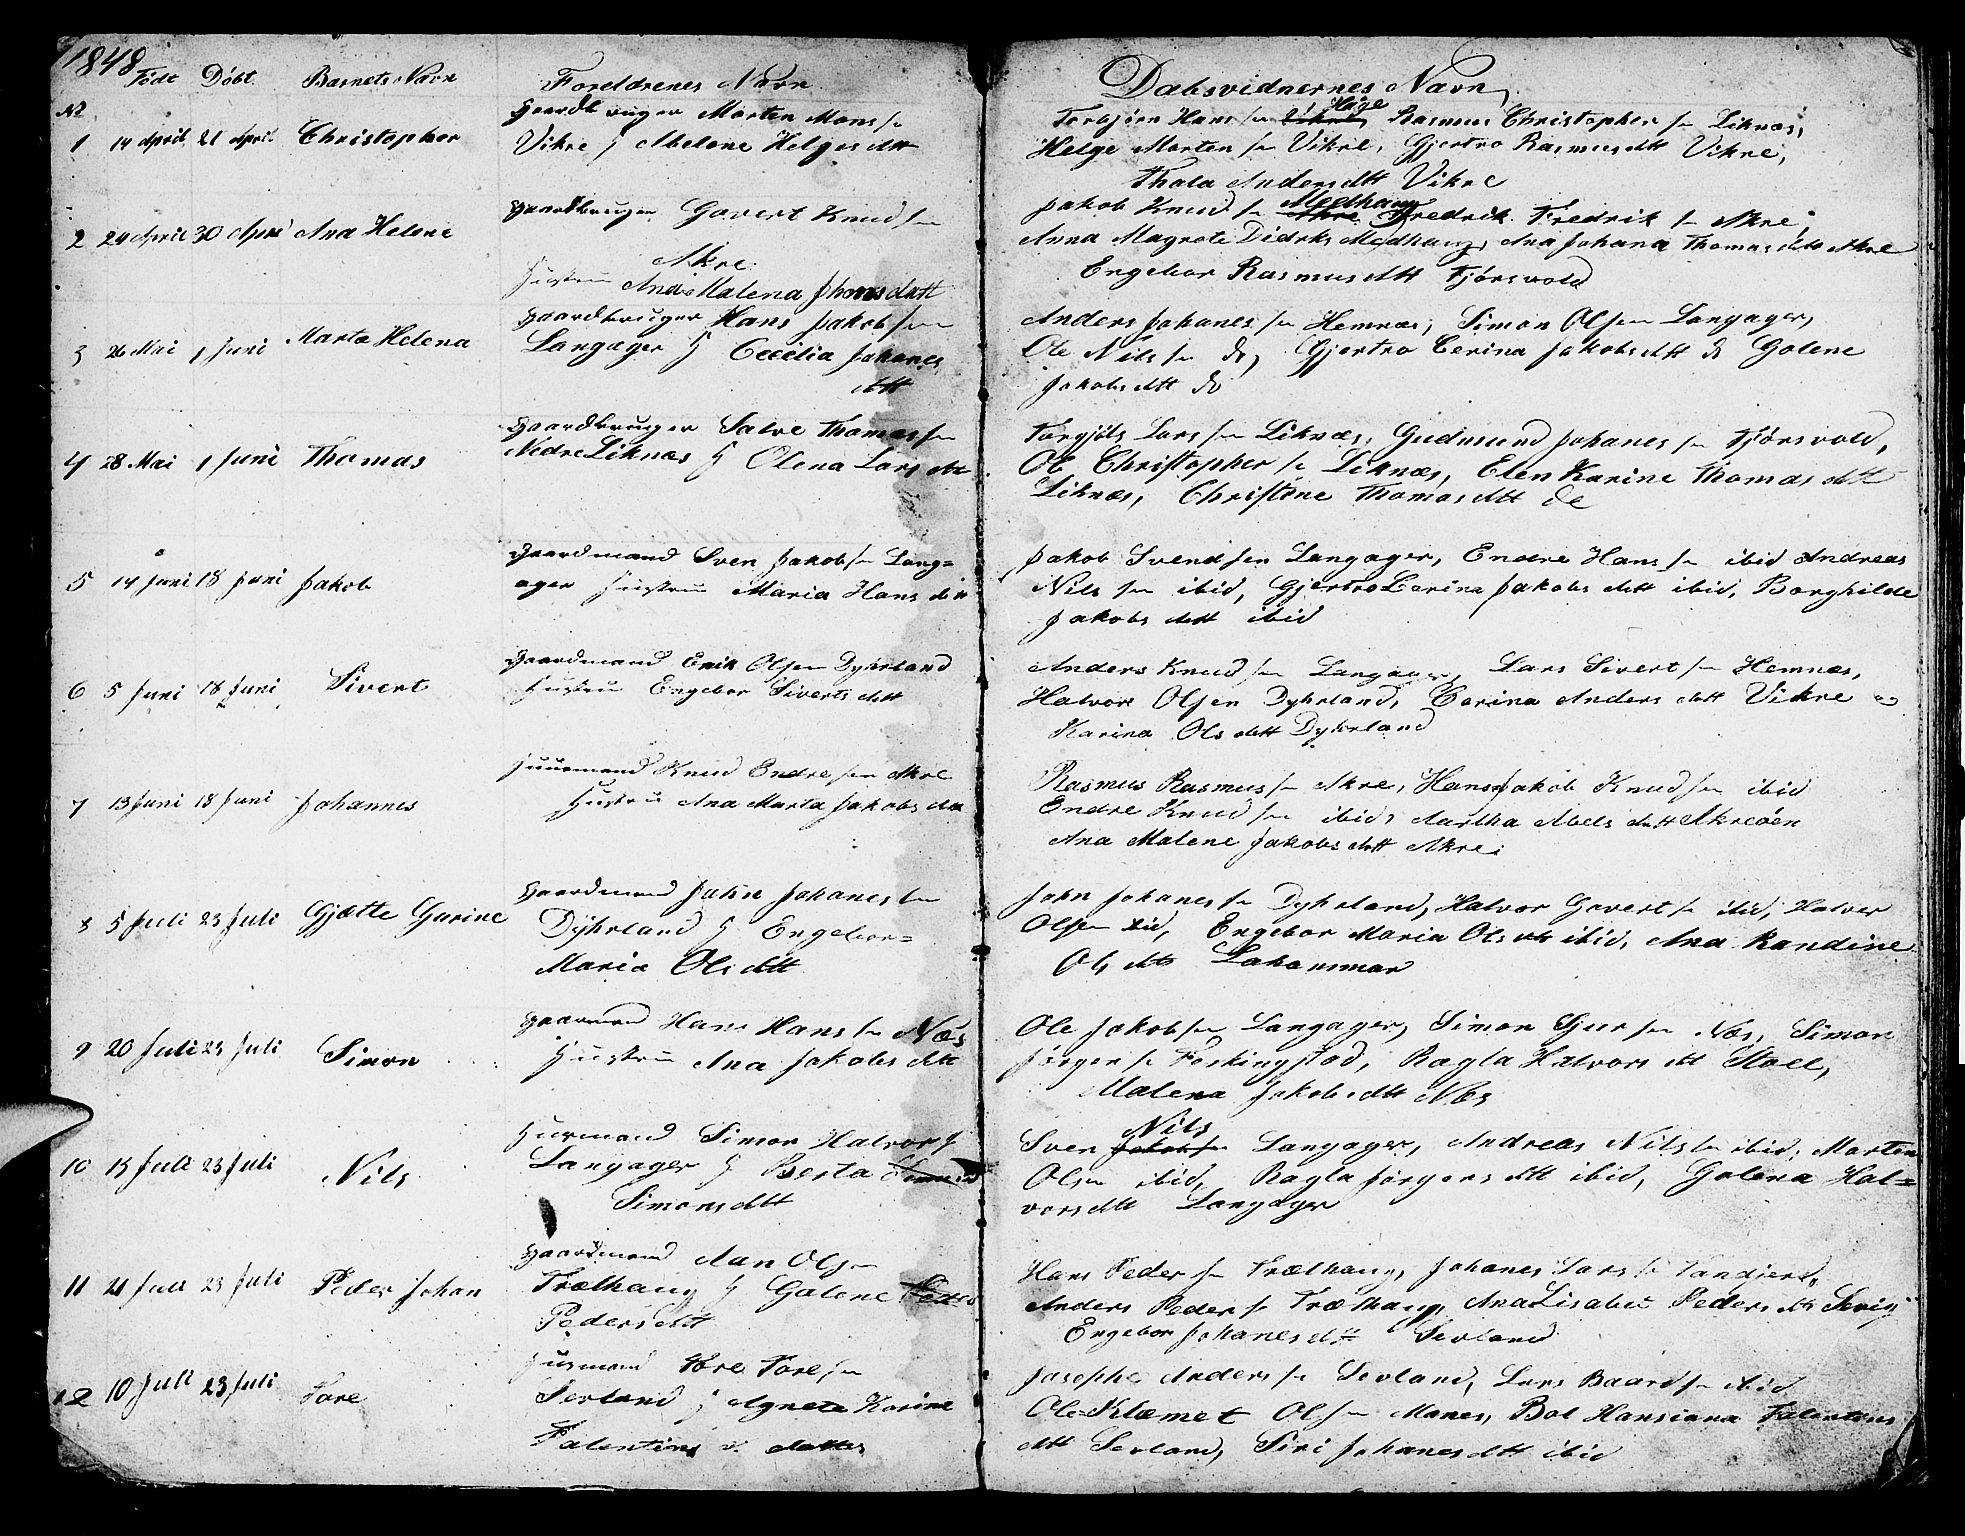 1848
Født Döbt Barnets Navn Foreldrenes Navn Dabsvidnernes Navn
No
1 14 April 21 April Christopher
Gaardbruger Morten Mons sn
Vikre H Melene Helges dtt
Torbjörn Hans sn Vikre Høge Rasmus Christopher sn Liknæs,
Helge Morten sn Vikre, Gjertro Rasmus dtt Vikre,
Thala Anders dtt Vikre
2 24 April 30 April Ana Helene
Gaardbruger Govert Knud sn
Akre
Hustru Ana Malena Thomsdatt
Jakob Knud sn Medhaug Fredrik Fredrik sn Akre,
Anna Magrete Didriks Medhaug, Ana Johana Thomas dtt Akre
Engebor Rasmus dtt Fjörsvold
3 26 Mai 1 Juni Marta Helena
Gaardbruger Hans Jakob sen
Langager H Cecilia Johanes
dtt
Anders Johanes sn Hemnæs, Simon Olsen Langager,
Ole Nils sn do, Gjertro Cerina Jakobs dtt do Golene
Jakobs dtt do
4 28 Mai 1 Juni Thomas
Gaardbruger Salve Thomas sn
Nedre Liknæs H Olena Lars dtt
Torgjöls Lars sn Liknæs, Gudmund Johanes sn Fjörsvold,
Ole Christopher sn Liknæs, Elen Karine Thomas dtt
Liknæs, Christene Thomas dtt do
5 14 Juni 18 Juni Jakob
Gaardmand Sven Jakob sn Lang=
ager Hustru Maria Hans dtr
Jakob Svendsen Langager, Endre Hans sn ibid Andreas
Nils sn ibid, Gjertro Cerina Jakobs datt ibid, Borghilde
Jakobs datt ibid
6 5 Juni 18 Juni Sivert
Gaardmand Erik Olsen Dyhrland
Hustru Engebor Siverts datt
Anders Knud sn Langager, Lars Sivert sn Hemnæs,
Halvor Olsen Dyhrland, Cerina Anders datt Vikre
Karina Ols datt Dyhrland
7 13 Juni 18 Juni Johannes
Huusmand Knud Endre sen Akre
Hustru Ana Marta Jakobs dtr
Rasmus Rasmus sn Akre, Hans Jakob Knud sen ibid
Endre Knud sen ibid, Martha Abels datt Akreöen
Ana Malene Jakobs datt Akre
8 5 Juli 23 Juli Gjætte Gurine
Gaardmand John Johanes sn
Dyhrland H Engebor=
Maria Ols dtt
John Johanes sn Dyhrland, Halvor Govert sn ibid, Halvor
Olsen ibid, Engebor Maria Ols dtr ibid, Ana Randine
Ols dtt Lahammar
9 20 Juli 23 Juli Simon
Gaarmand Hans Hans sn Næs
Hustru Ana Jakobs dtt
Ole Jakob sn Langager, Simon Sjur sen Næs, Simon
Jörgen sn Foskingstad, Ragla Halvors dtt Stoll,
Malena Jakobs dtt Næs
10 15 Juli 23 Juli Nils
Husmand Simon Halvor s
Langager H Berta
Simons dtt
Sven Nils Jakob sn Langager, Andreas Nils sn ibid, Morten
Olsen ibid, Ragla Jörgens dtt ibid, Golena Hal=
vors dtt Langager
11 21 Juli 23 Juli Peder Johan
Gaardmand Aan Olsen
Trælhaug H Golene Peders
Peders dtt
Hans Peder sn Trælhaug, Johanes Lars sn
Anders Peder sn Trælhaug, Ana Lisabet Peders dtt Sevig
Engebor Johanes dtt Sevland
12 10 Juli 23 Juli Tore
Husmand Tore Tore sn
Sevland H Agnete Karine
Falentins datter
Josephe Anders sn Sevland, Lars Baard sn ibid
Ole Klæmet Olsen Manes, Bol Hansiana Falentins
dtt Sevland, Siri Johanes dtt ibid